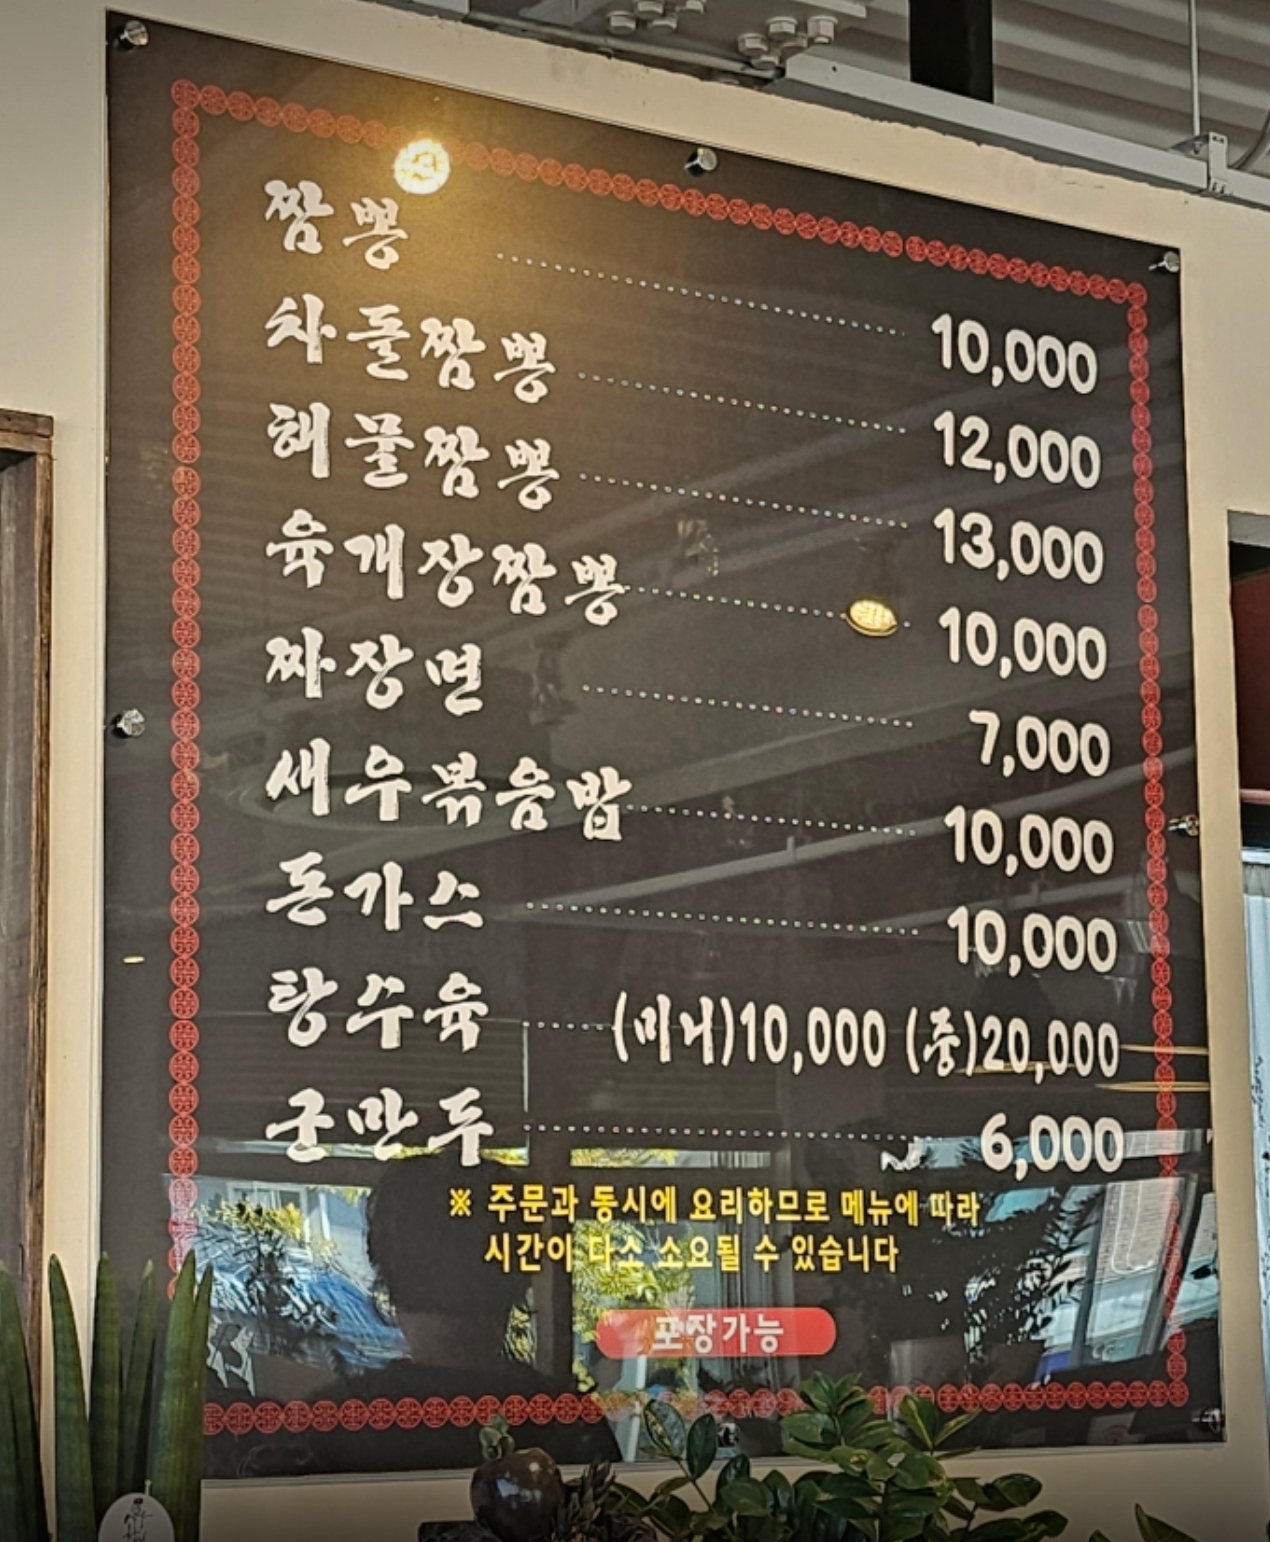 짬뽕 10,000
차돌짬뽕 12,000
해물짬뽕 13,000
육개장짬뽕 10,000
짜장면 7,000
새우볶음밥 10,000
돈가스 10,000
탕수육 (미니)10,000 (중)20,000
군만두 6,000
※ 주문과 동시에 요리하므로 메뉴에 따라
시간이 다소 소요될 수 있습니다
포장가능